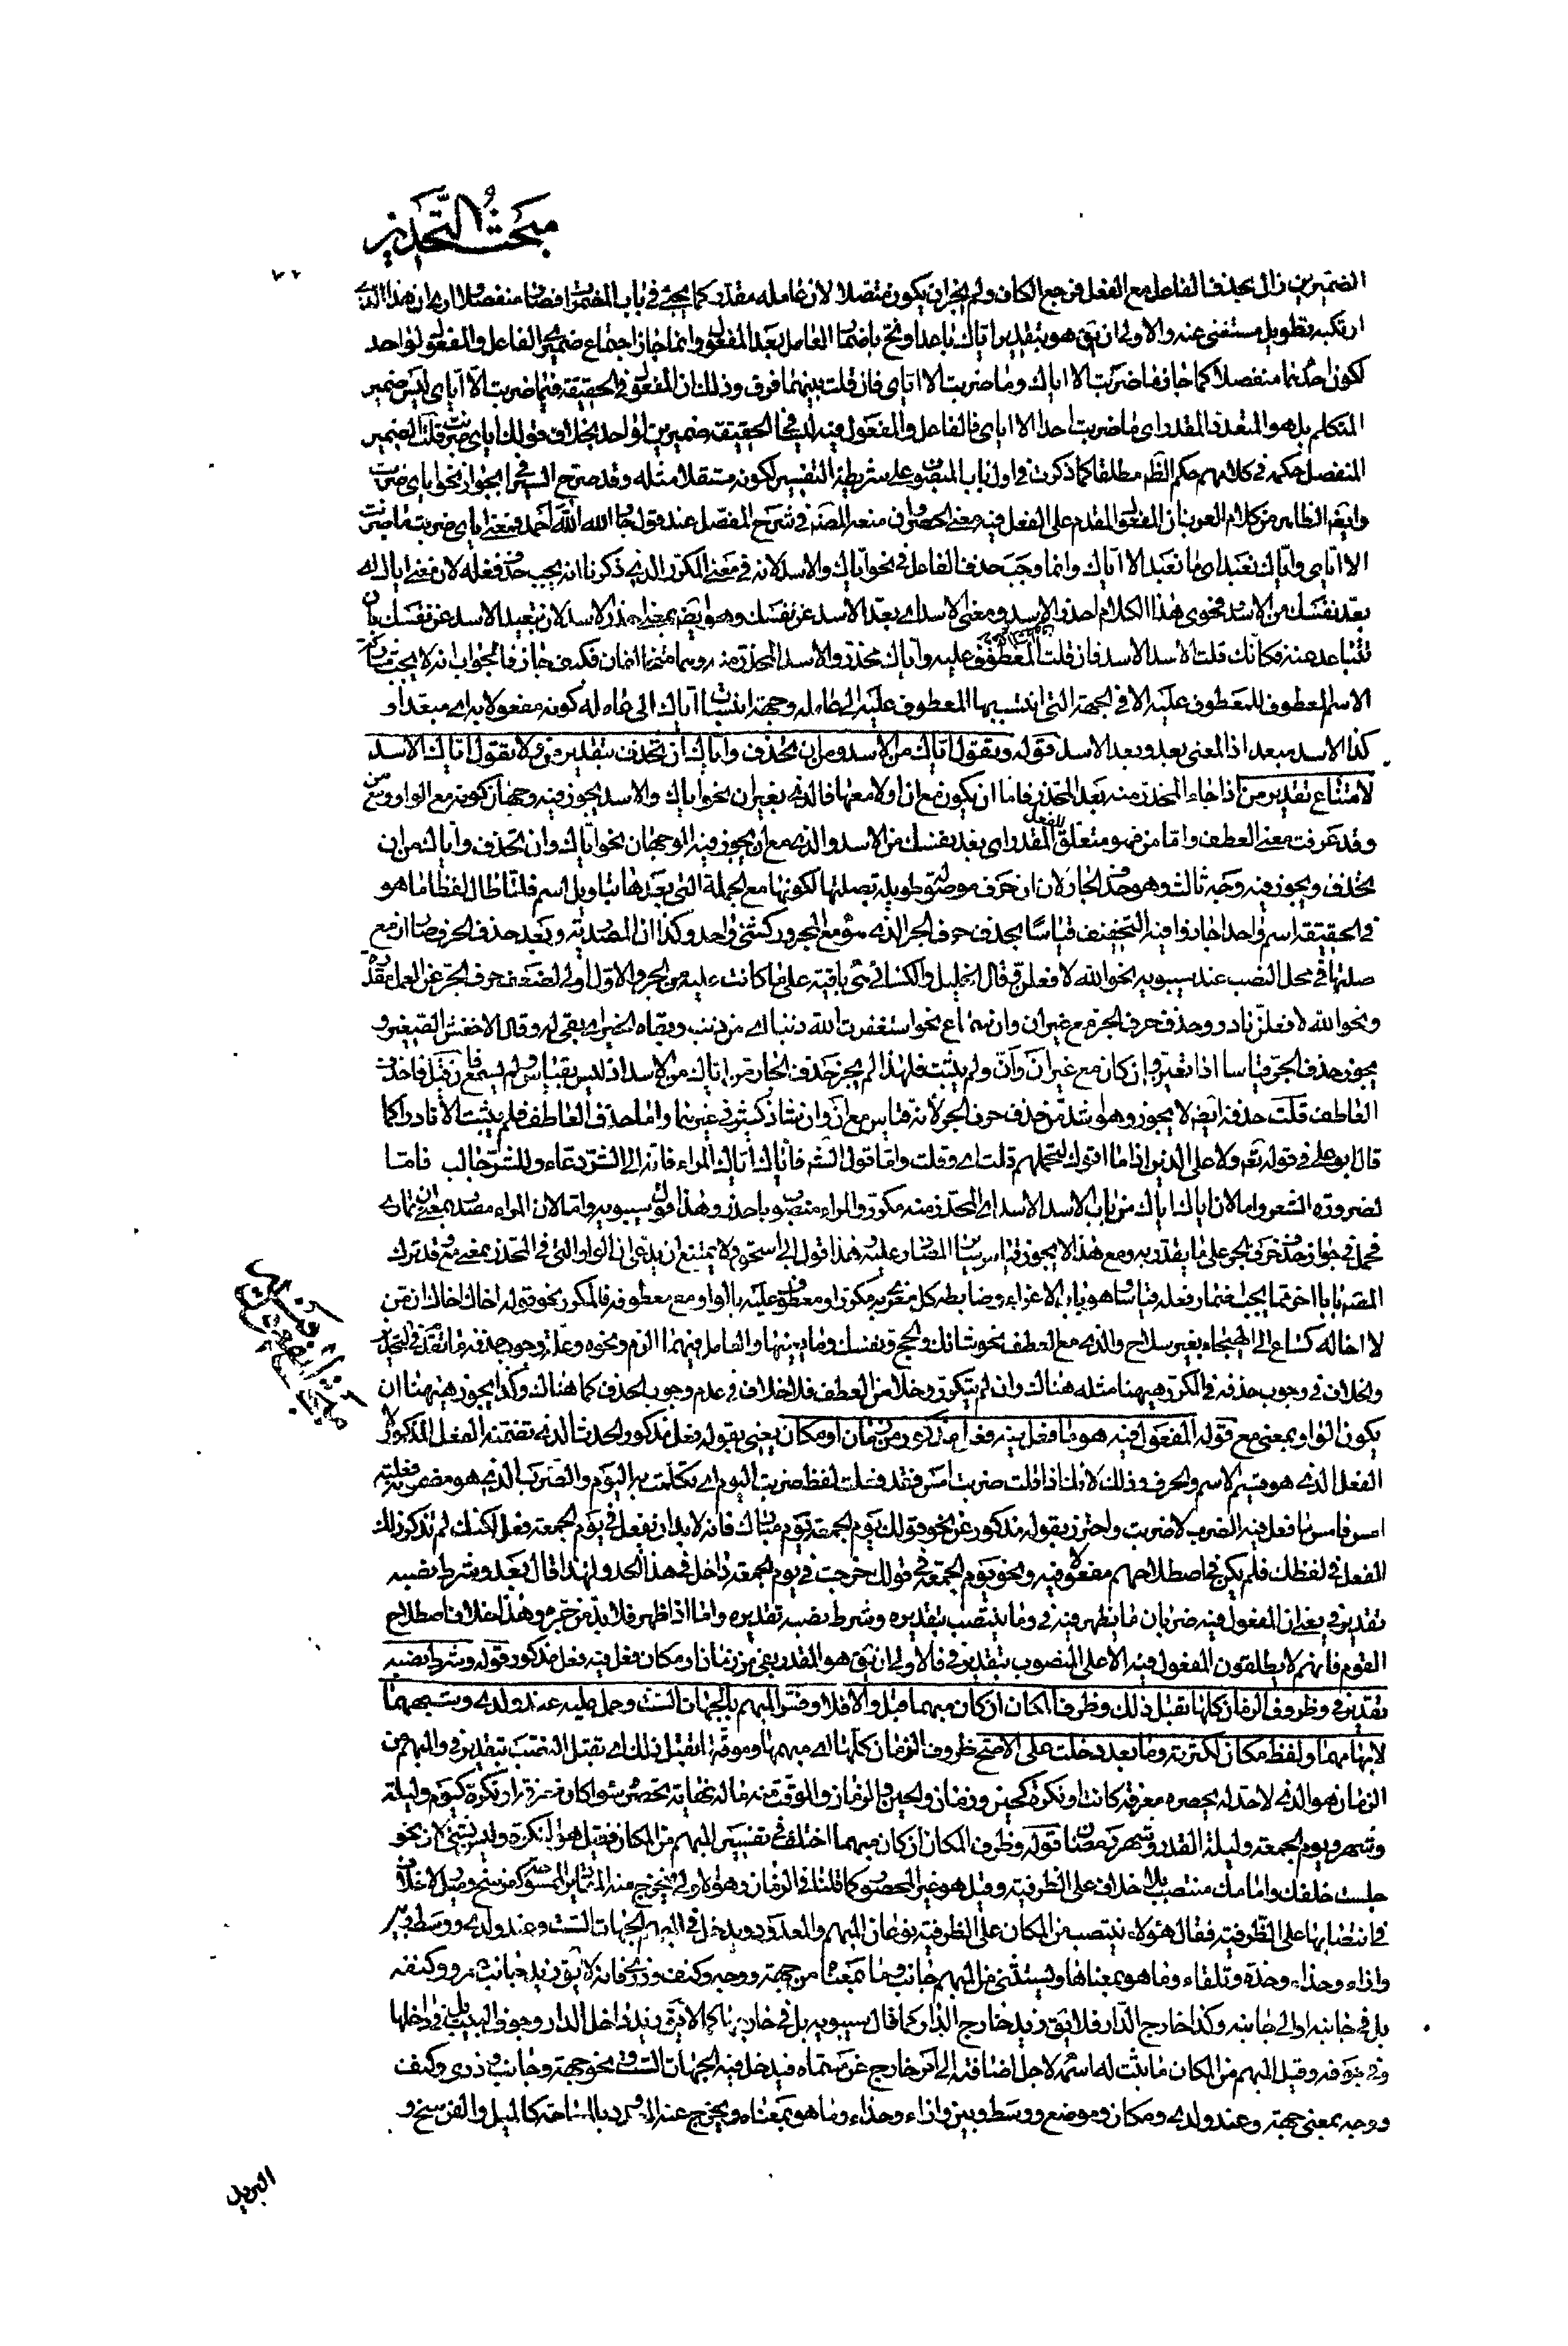 مبحث التحذير
٧٢
الضميرين زال بحذف الفاعل مع الفعل فرجع الكاف ولم يجز ان يكون متصلا لان عامله مقدر كما يجئ في باب المضمرات فصار منفصلا وارى ان هذا الذى
ارتكبه تطويل مستغنى عنه والاولى ان يق هو بتقدير اياك باعد او نح باضمار العامل بعد المفعول وانما جاز اجتماع ضميرى الفاعل والمفعول لواحد
لكون احدهما منفصلا كما جاز ما ضربت الا اياك وما ضربت الا اياى فان قلت بينهما فرق وذلك ان المفعول في الحقيقة فيما ضربت الا اياى ليس ضمير
المتكلم بل هو المتعدد المقدر اى ما ضربت احدا الا اياى فالفاعل والمفعول فيه ليسا في الحقيقة ضميرين لواحد بخلاف قولك اياى ضربت قلت الضمير
المنفصل حكمه في كلامهم حكم الظم مطلقا كما ذكرت في اول باب المنصوب على شريطة التفسير لكونه مستقلا مثله وقد صرح السيرافي بجواز نحو اياى ضربت
وايضم الظاهر من كلام العرب ان المفعول المقدم على الفعل فيه معنى الحصر وان منعه المصنف في شرح المفصل عند قول جار الله الله احمد فمعنى اياى ضربت ما ضربت
الا اياى واياك نعبد اى ما نعبد الا اياك وانما وجب حذف الفاعل في نحو اياك والاسد لانه في معنى المكرر الذى ذكرنا انه يجب حذف فعله لان معنى اياك اى
بعد نفسك من الاسد فحوى هذا الكلام احذر الاسد ومعنى الاسد اى بعد الاسد عن نفسك وهو ايضم بمعنى احذر الاسد لان تبعيد الاسد عن نفسك بان
تتباعد عنه فكانك قلت الاسد الاسد فان قلت المعطوف في حكم المعطوف عليه واياك محذر والاسد المحذر منه وهما متخالفان فكيف جاز فالجواب انه لا يجب مشاركة
الاسم المعطوف للمعطوف عليه الا في الجهة التى انتسب بها المعطوف عليه الى عامله وجهة انتساب اياك الى عامله كونه مفعولا به اى مبعدا و
كذا الاسد مبعد اذ المعنى بعد وبعد الاسد قوله وتقول اياك من الاسد ومن ان تحذف واياك ان تحذف بتقدير من ولا تقول اياك الاسد
لامتناع تقدير من اذا جاء المحذر منه بعد المحذر فاما ان يكون مع ان اولا معها فالذى بغير ان نحو اياك والاسد يجوز فيه وجهان كونه مع الواو ومع من
وقد عرفت معنى العطف واما من فهو متعلق بالفعل المقدر اى بعد نفسك من الاسد والذى مع ان يجوز فيه الوجهان نحو اياك وان تحذف واياك من ان
تحذف ويجوز فيه وجه ثالث وهو حذف الجار لان ان حرف موصولة طويلة بصلتها لكونها مع الجملة التى بعدها بتاويل اسم فلما طال لفظا ما هو
في الحقيقة اسم واحد اجازوا فيه التخفيف قياسا بحذف حرف الجر الذى هو مع المجرور كشئ واحد وكذا ان المصدرية وبعد حذف الحرف صار ان مع
صلتها في محل النصب عند سيبويه نحو الله لافعلن وقال الخليل والكسائى هى باقية على ما كانت عليه من الجر والاول اولى لضعف حرف الجر عن العمل مقدرا
ونحو الله لافعلن نادر وحذف حرف الجر مع غير ان وان سماع نحو استغفرت الله ذنبا اى من ذنب وبغاه الخير اى بغى له وقال الاخفش الصغير و
يجوز حذف الجر قياسا اذا تعين وان كان مع غير ان وان ولم يثبت فلهذا لم يجز حذف الجار من اياك من الاسد اذ ليس بقياس ولم يسمع فان قيل فاحذف
العاطف قلت حذفه ايضم لا يجوز وهو اشد من حذف حرف الجر لانه قياس مع ان وان شاذ كثير في غيرهما واما حذف العاطف فلم يثبت الا نادرا كما
قال ابو على في قوله تعم ولا على الذين اذا ما اتوك لتحملهم قلت اى وقلت واما قول الشم فاياك اياك المراء فانه الى الشر دعاء وللشر جالب فاما
لضرورة الشعر واما لان اياك اياك من باب الاسد الاسد اى المحذر منه مكرر والمراء منصوب باحذر وهذا قول سيبويه واما لان المراء مصدر بمعنى ان تمارى
فحمل في جواز حذف حرف الجر على ما يقدر به ومع هذا لا يجوز قياس سائر المصادر عليه هذا قول ابى اسحق ولا يمتنع ان يدعى ان الواو التى في المحذر بمعنى مع وقد ترك
المصم بابا اخر مما يجب اضمار فعله قياسا وهو باب الاغراء وضابطه كل مغرى به مكرر او معطوف عليه بالواو مع معطوفه فالمكرر نحو قوله اخاك اخاك ان من
لا اخا له كساع الى الهيجاء بغير سلاح والذى مع العطف نحو شانك والحج ونفسك وما يعنيها والعامل فيهما الزم ونحوه وعلة وجوب حذفه ما تقدم في التحذير
والخلاف في وجوب حذفه في المكرر ههنا مثله هناك وان لم يتكرر وخلا من العطف فلا خلاف في عدم وجوب الحذف كما هناك وكذا يجوز ههنا ان
يكون الواو بمعنى مع قوله المفعول فيه هو ما فعل فيه فعل مذكور من زمان او مكان يعنى بقوله فعل مذكور الحدث الذى تضمنه الفعل المذكور لا
الفعل الذى هو قسيم الاسم والحرف وذلك لانك اذا قلت ضربت امس فقد فعلت لفظ ضربت اليوم اى تكلمت به اليوم والضرب الذى هو مضمونه فعلته
امس فامس ما فعل فيه الضرب لا ضربت واحترز بقوله مذكور عن نحو قولك يوم الجمعة يوم مبارك فانه لابد ان تفعل في يوم الجمعة فعل لكنك لم تذكر ذلك
الفعل في لفظك فلم يكن في اصطلاحهم مفعولا فيه ونحو يوم الجمعة في قولك خرجت في يوم الجمعة داخل في هذا الحد ولهذا قال بعد وشرط نصبه
تقدير في يعنى ان المفعول فيه ضربان ما يظهر فيه في وما ينتصب بتقديره وشرط نصبه تقديره واما اذا ظهر فلابد من جره وهذا خلاف اصطلاح
القوم فانهم لا يطلقون المفعول فيه الا على المنصوب بتقدير في فالاولى ان يق هو المقدر بفى من زمان او مكان فعل فيه فعل مذكور قوله وشرط نصبه
تقدير في وظروف الزمان كلها تقبل ذلك وظرف المكان ان كان مبهما قبل والا فلا وفسر المبهم بالجهات الست وحمل عليه عند ولدى وشبههما
لابهامهما ولفظ مكان لكثرته وما بعد دخلت على الاصح ظروف الزمان كلها اى مبهمها وموقتها تقبل ذلك اى تقبل النصب بتقدير في والمبهم من
الزمان هو الذى لا حد له يحصره معرفة كانت او نكرة كحين وزمان والحين والزمان والموقت منه ما له نهاية تحصره سواء كان معرفة او نكرة كيوم وليلة
وشهر ويوم الجمعة وليلة القدر وشهر رمضان قوله وظرف المكان ان كان مبهما اختلف في تفسير المبهم من المكان فقيل هو النكرة وليس بشئ لان نحو
جلست خلفك وامامك منتصب بلا خلاف على الظرفية وقيل هو غير المحصور كما قلنا في الزمان وهو الاولى فيخرج منه المقادير الممسوحة كفرسخ وميل ولا خلاف
في انتصابها على الظرفية فقال هؤلاء ينتصب من المكان على الظرفية نوعان المبهم والمعدود ويدخل في المبهم الجهات الست وعند ولدى ووسط وبين
وازاء وحذاء وحذة وتلقاء وما هو بمعناها ويستثنى من المبهم جانب وما بمعناه من جهة ووجه وكنف وذرى فانه لا يق زيد جانب عمرو وكنفه
بل في جانبه او الى جانبه وكذا خارج الدار فلا يق زيد خارج الدار كما قال سيبويه بل في خارجها كما لا يق زيد داخل الدار وجوف البيت بل في داخلها
وفي جوفه وقيل المبهم من المكان ما يثبت له اسمه لاجل اضافته الى امر خارج عن مسماه فيدخل فيه الجهات الست ونحو جهة وجانب وذرى وكنف
ووجه بمعنى جهة وعند ولدى ومكان وموضع ووسط وبين وازاء وحذاء وما هو بمعناه ويخرج عنه المعدود بالمساحة كالميل والفرسخ و
البريد